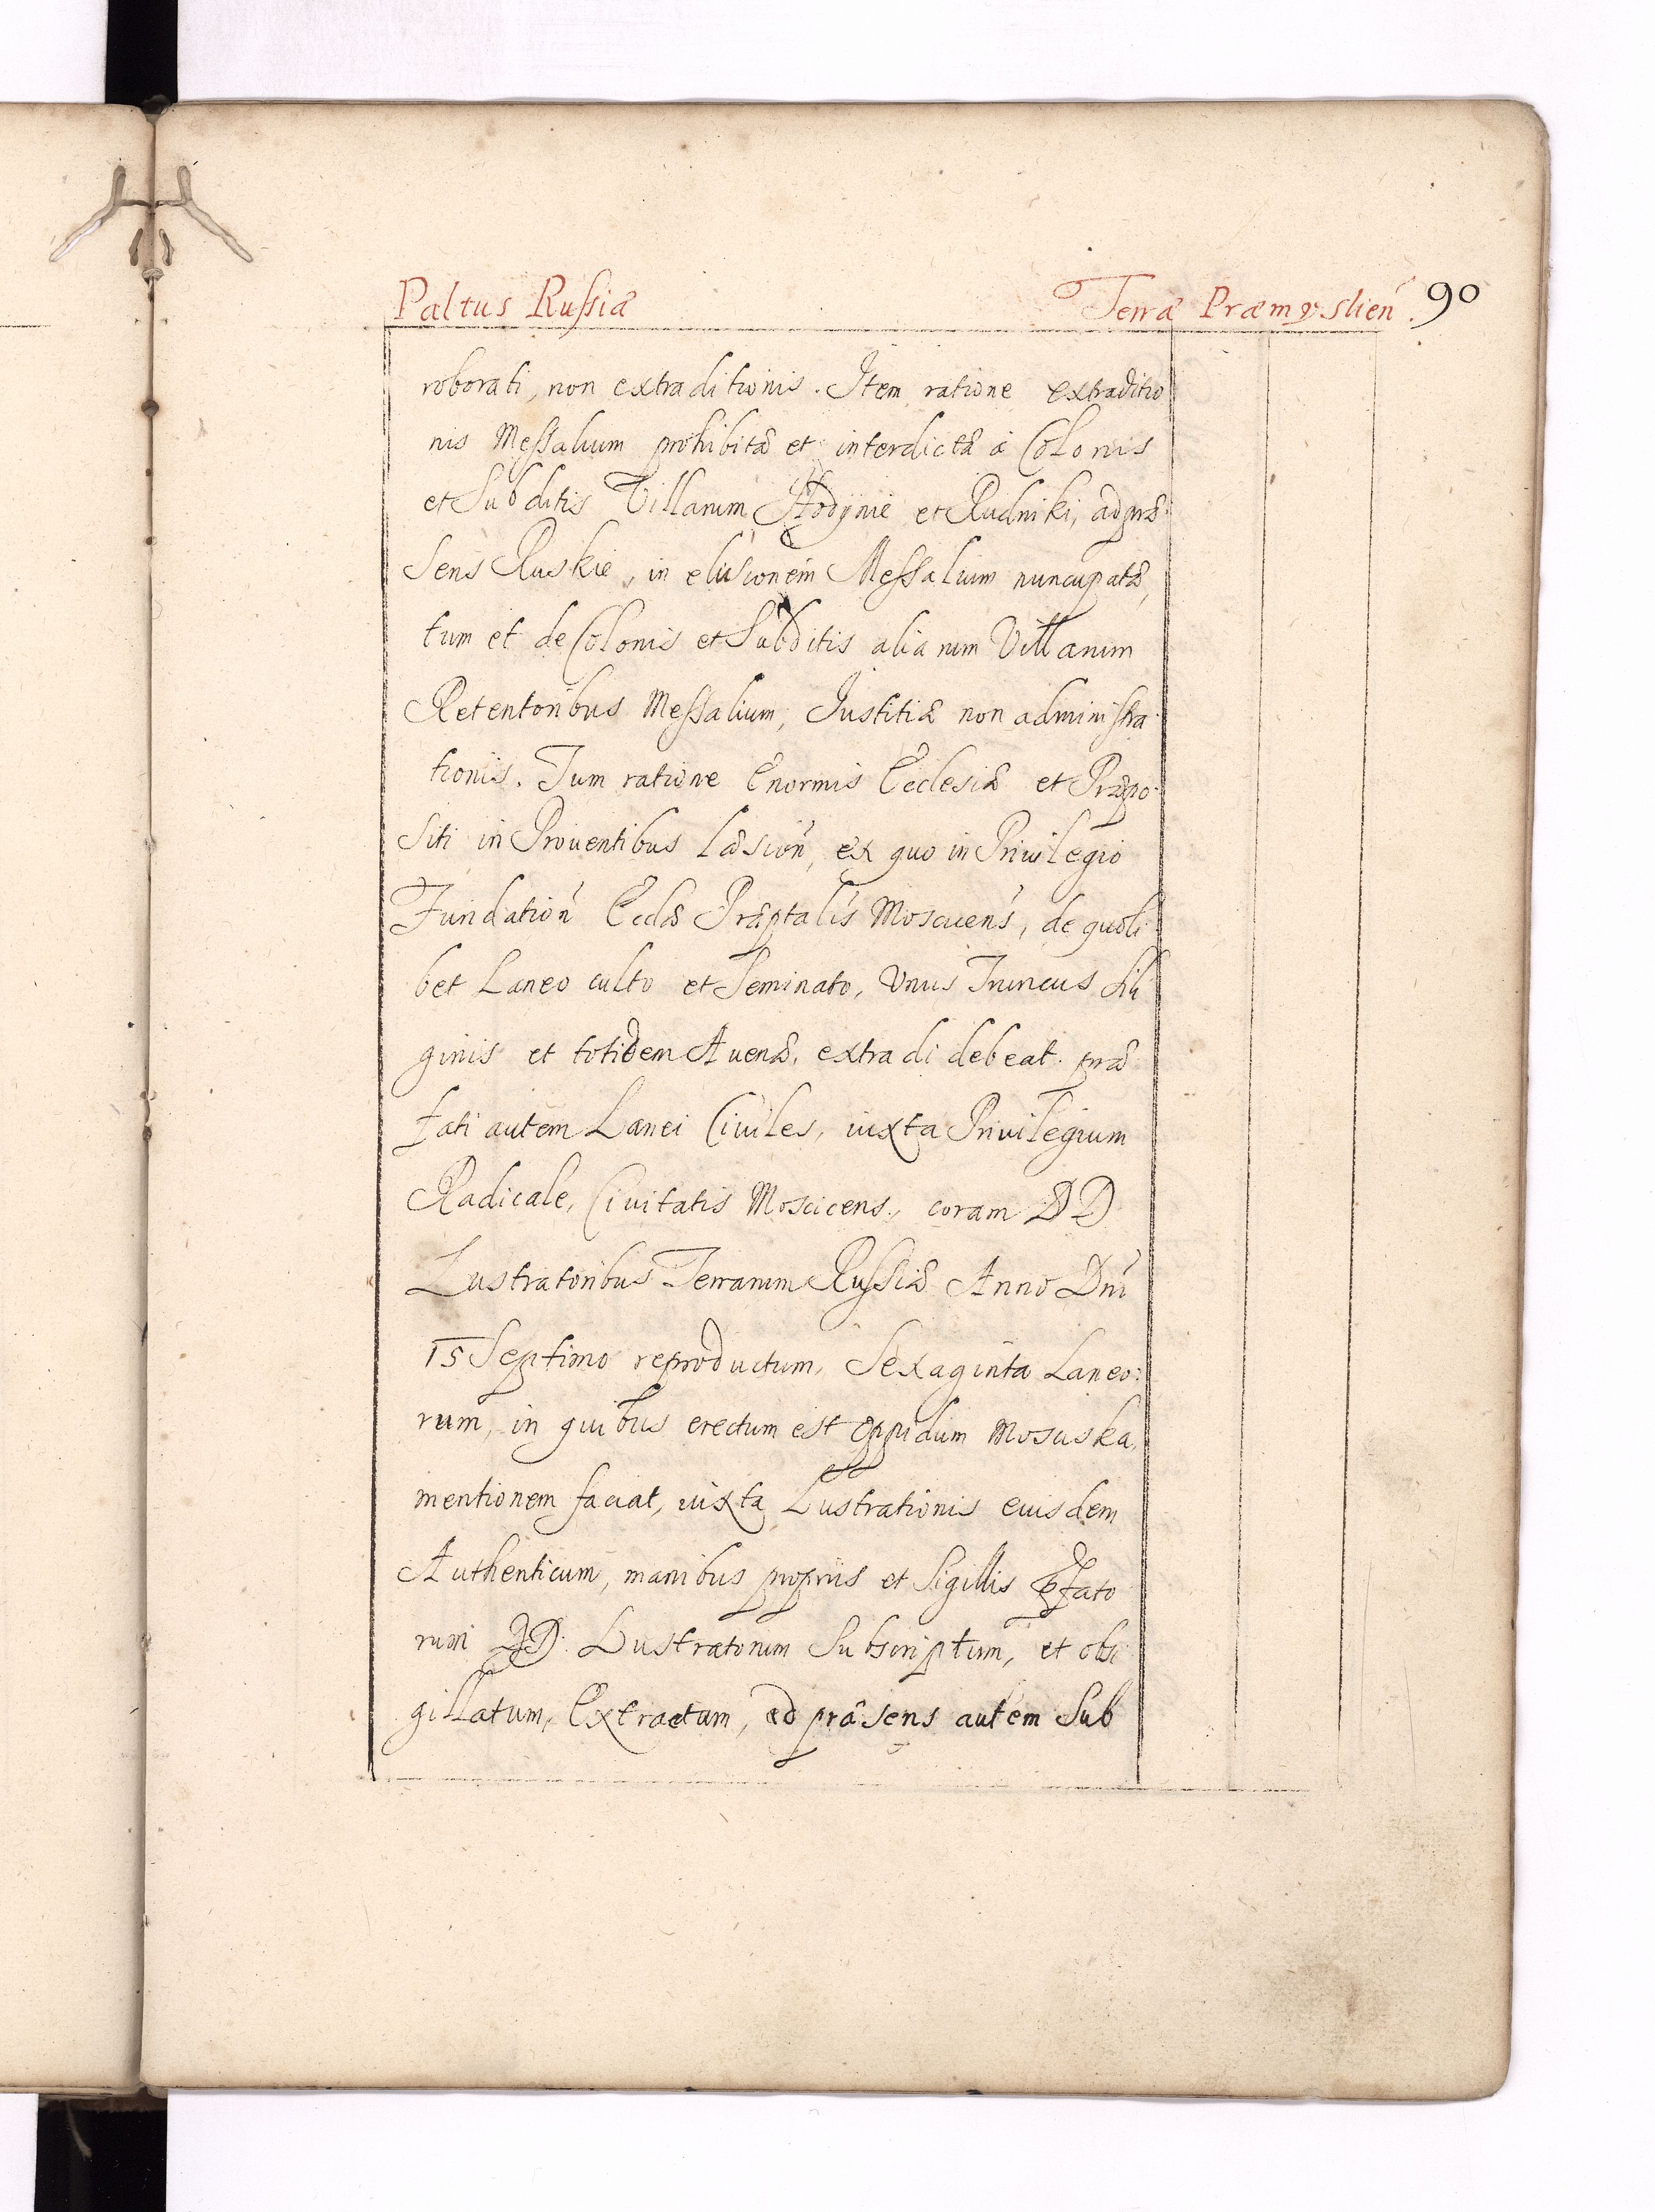 Paltus Russiæ Terræ Præmysłień. 90
roborati, non extraditionis. Item ratione extraditio
nis Messalium prohibitæ et interdictæ à Colonis
et Subditis Villarum et Rudniki, ad præ:
sens Ruskie, in elusionem Messalium nuncupatæ,
tum et de Colonis et Subditis aliarum Villarum
Retentoribus Messalium, Justitiæ non administra:
tionis. Tum ratione Enormis Ecclesiæ et Præpo:
siti in Prouentibus læsioñ, ex quo in Priuilegio
Fundatioñ Eccl̃æ Præptalis Moscicens̃, de quoli
bet Laneo culto et Seminato, Vnus Truncus Sili
ginis et totidem Auenæ, extradi debeat. præ
fati autem Lanei Ciuiles, iuxta Priuilegium
Radicale, Ciuitatis Moscicens., coram DD
Lustratoribus Terrarum Russiæ Anno Dn̄i
15 Septimo reproductum, Sexaginta Laneo:
rum, in quibus erectum est Oppidum Mosciska,
mentionem faciat, iuxta Lustrationis eiusdem
Authenticum, manibus proprijs et Sigillis p̃fato
rum DD. Lustratorum Subscriptum, et obsi
gillatum, Extractum, ad præsens autem Sub